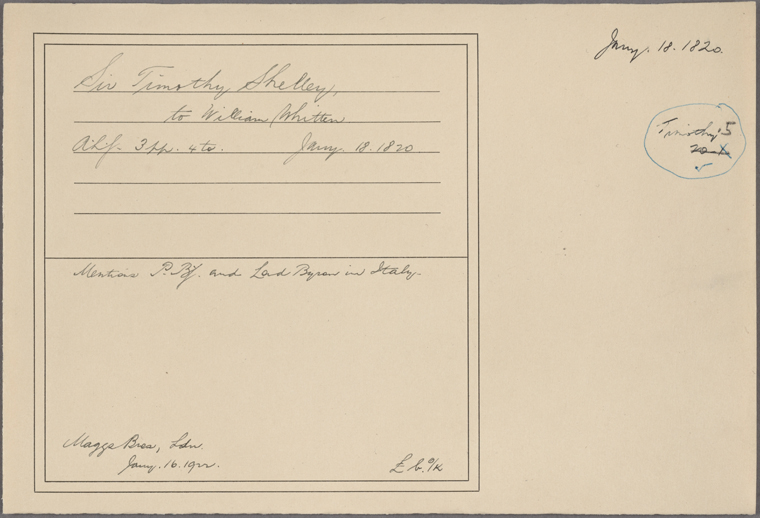 Jany. 18. 1820.
Timothy 5
Sir Timothy Shelley,
to William Whitton
3 pp. 4to. Jany. 18. 1820
Mentions P.B.S. and Lord Byron in Italy.
Maggs Bros, Ldn.
Jany. 16. 1922.
£